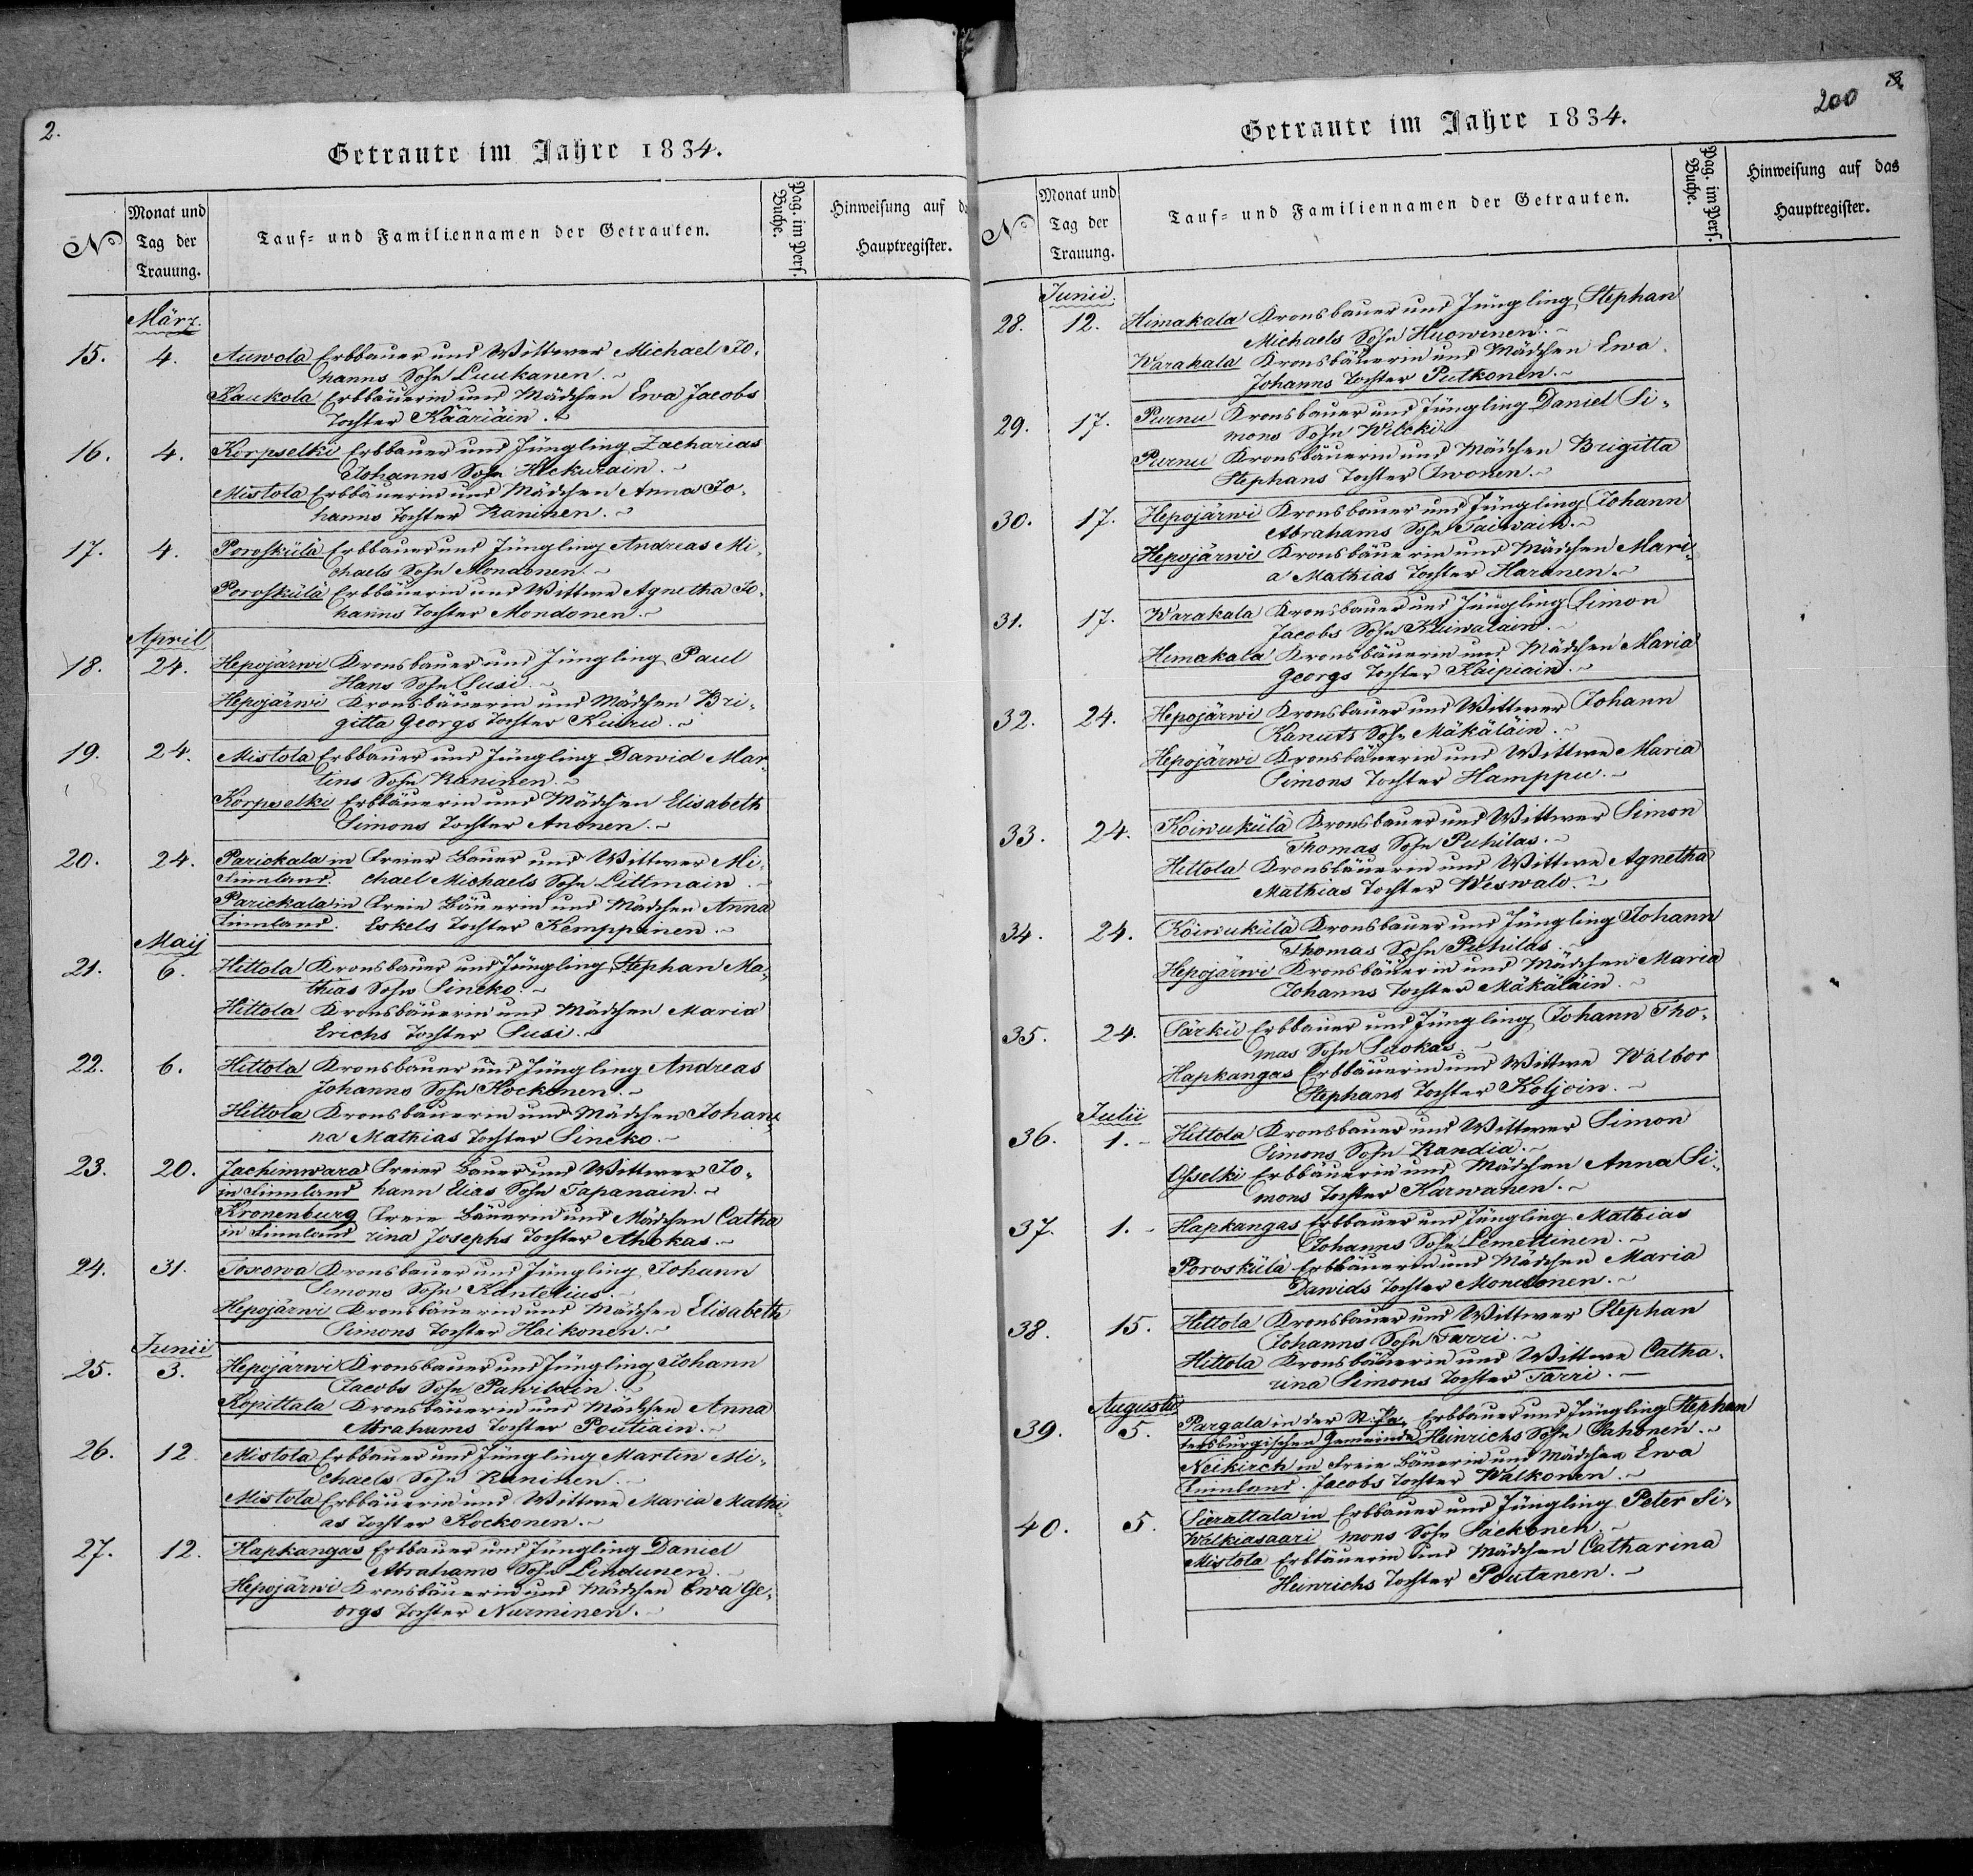 2.
Getraute im Jahre 1834.
No
Monat und
Tag der
Trauung.
Tauf- und Familiennamen der Getrauten.
Pag. im Pers.
Buche.
Hinweisung auf d
Hauptregister.
März.
15. 4. Auwola Erbbauer und Wittwer Michael Jo-
hanns Sohn Luukanen.
Kaukola Erbbäuerin und Mädchen Ewa Jacobs
Tochter Kääriäin.
16. 4. Korpselki Erbbauer und Jüngling Zacharias
Johanns Sohn Heckurain.
Mistola Erbbäuerin und Mädchen Anna Jo-
hanns Tochter Raninen.
17. 4. Poroskülä Erbbauer und Jüngling Andreas Mi-
chaels Sohn Mondonen.
Poroskülä Erbbäuerin und Wittwe Agnetha Jo-
hanns Tochter Mondonen.
April
18. 24. Hepojärwi Kronsbauer und Jüngling Paul
Hans Sohn Susi.
Hepojärwi Kronsbäuerin und Mädchen Bri-
gitta Georgs Tochter Kuiru.
19. 24. Mistola Erbbauer und Jüngling Dawid Mar-
tins Sohn Raninen.
Korpselki Erbbäuerin und Mädchen Elisabeth
Simons Tochter Anonen.
20. 24. Parickala in freier Bauer und Wittwer Mi-
Finnland. chael Michaels Sohn Littmain.
Parickala in freie Bäuerin und Mädchen Anna
Finnland. Eskels Tochter Kemppinen.
Maij
21. 6. Hittola Kronsbauer und Jüngling Stephan Ma-
thias Sohn Sincko.
Hittola Kronsbäuerin und Mädchen Maria
Erichs Tochter Susi.
22. 6. Hittola Kronsbauer und Jüngling Andreas
Johanns Sohn Kockonen.
Hittola Kronsbäuerin und Mädchen Johan-
na Mathias Tochter Sincko.
23. 20. Jachimwara freier Bauer und Wittwer Jo-
in Finnland hann Elias Sohn Tapanain.
Kronenburg freie Bäuerin und Mädchen Catha
in Finnland rina Josephs Tochter Ahokas.
24. 31. Toxowa Kronsbauer und Jüngling Johann
Simons Sohn Kantelius.
Hepojärwi Kronsbäuerin und Mädchen Elisabeth
Simons Tochter Haikonen.
Junii
25. 3. Hepojärwi Kronsbauer und Jüngling Johann
Jacobs Sohn Pawilain.
Kopittala Kronsbäuerin und Mädchen Anna
Abrahams Tochter Poutiain.
26. 12. Mistola Erbbauer und Jüngling Martin Mi-
chaels Sohn Raninen.
Mistola Erbbäuerin und Wittwe Maria Mathi-
as Tochter Kockonen.
27. 12. Hapkangas Erbbauer und Jüngling Daniel
Abrahams Sohn Lindunen.
Hepojärwi Kronsbäuerin und Mädchen Ewa Ge-
orgs Tochter Nurminen.
200 3.
Getraute im Jahre 1834.
No
Monat und
Tag der
Trauung.
Tauf- und Familiennamen der Getrauten.
Pag. im Pers.
Buche.
Hinweisung auf das
Hauptregister.
Junii
28. 12. Himakala Kronsbauer und Jüngling Stephan
Michaels Sohn Huowinen.
Warakala Kronsbäuerin und Mädchen Ewa
Johanns Tochter Putkonen.
29. 17. Purnu Kronsbauer und Jüngling Daniel Si-
mons Sohn Wilcki
Purnu Kronsbäuerin und Mädchen Brigitta
Stephans Tochter Iwonen.
30. 17. Hepojärwi Kronsbauer und Jüngling Johann
Abrahams Sohn Taiwain.
Hepojärwi Kronsbäuerin und Mädchen Mari-
a Mathias Tochter Haranen.
31. 17. Warakala Kronsbauer und Jüngling Simon
Jacobs Sohn Kuiwalain.
Himakala Kronsbäuerin und Mädchen Maria
Georgs Tochter Kaipiain.
32. 24. Hepojärwi Kronsbauer und Wittwer Johann
Kanuts Sohn Mäkäläin.
Hepojärwi Kronsbäuerin und Wittwe Maria
Simons Tochter Hamppu.
33. 24. Koiwukülä Kronsbauer und Wittwer Simon
Thomas Sohn Puhilas.
Hittola Kronsbäuerin und Wittwe Agnetha
Mathias Tochter Weswalo.
34. 24. Koiwukülä Kronsbauer und Jüngling Johann
Thomas Sohn Puhilas.
Hepojärwi Kronsbäuerin und Mädchen Maria
Johanns Tochter Mäkäläin.
35. 24. Särkii Erbbauer und Jüngling Johann Tho-
mas Sohn Suokas
Hapkangas Erbbäuerin und Wittwe Walbor
Stephans Tochter Koljoin.
Julii
36. 1. Hittola Kronsbauer und Wittwer Simon
Simons Sohn Randia.
Osselki Erbbäuerin und Mädchen Anna Si-
mons Tochter Karwanen.
37. 1. Hapkangas Erbbauer und Jüngling Mathias
Johanns Sohn Lemettinen.
Poroskülä Erbbäuerin und Mädchen Maria
Dawids Tochter Mondonen.
38. 15. Hittola Kronsbauer und Wittwer Stephan
Johanns Sohn Tarri.
Hittola Kronsbäuerin und Wittwe Catha-
rina Simons Tochter Tarri.
Augusti
39. 5. Pargala in der St. Pe- Erbbauer und Jüngling Stephan
tersburgischen Gemeinde Heinrichs Sohn Pahonen.
Neikirch in freie Bäuerin und Mädchen Ewa
Finnland. Jacobs Tochter Walkonen.
40. 5. Sierattala in Erbbauer und Jüngling Peter Si-
Walkiasaari mons Sohn Säckonen
Mistola Erbbäuerin und Mädchen Catharina
Heinrichs Tochter Poutanen.